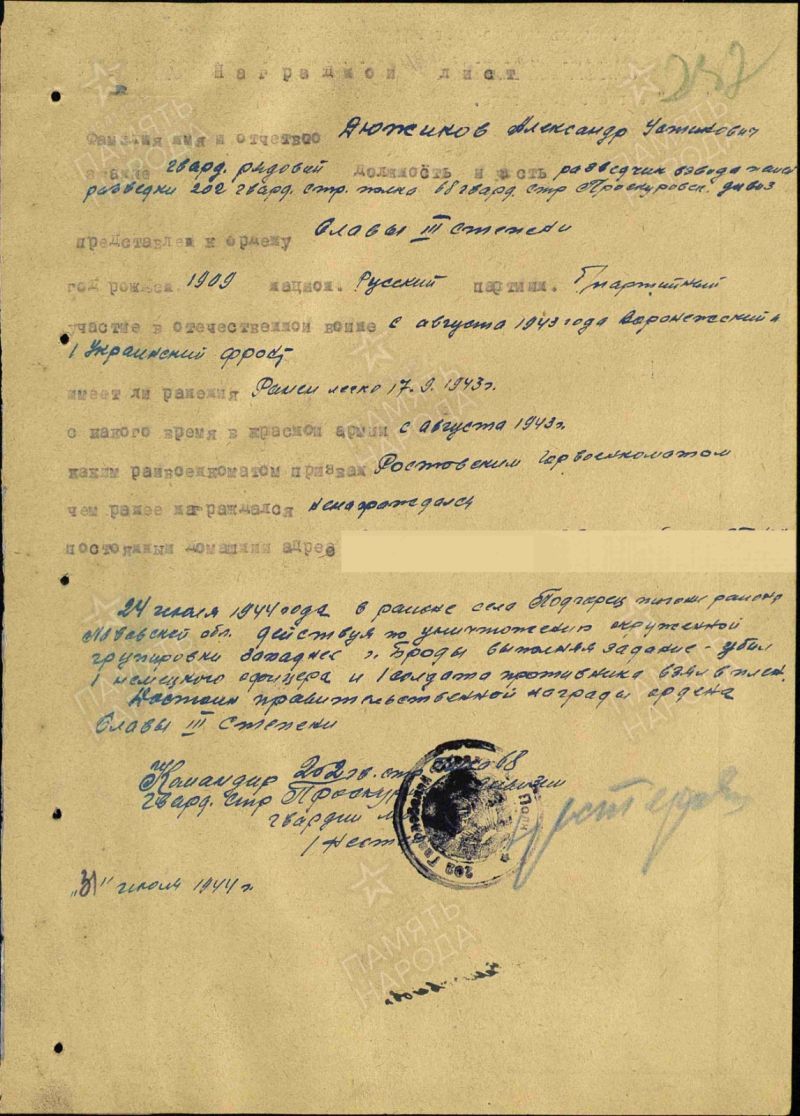 Наградной лист
Фамилия имя и отчество Дюжиков Александр
звание гвард. рядовой должность и часть разведчик взвода
разведки 202 гвард. стр. полка 68 гвард. стр Проскуровск. дивиз
представлен к ордену Славы III степени
год рожден. 1909 национ. Русский партийн. Б/партийный
участие в отечественной войне с августа 1943 года Воронежский и
1 Украинский фронт
имеет ли ранения Ранен легко 17.9.1943 г.
с какого время в красной армии с августа 1943 г.
каким райвоенкоматом призван Ростовским Горвоенкоматом
чем ранее награждался ненаграждался
постоянный домашний адрес
24 июля 1944 года в районе села Подгорец района
Львовской обл. действуя по уничтожению окруженной
групировки западнее г. Броды выполняя задание - убил
1 немецкого офицера и 1 солдата противника взял в плен.
Достоин правительственной награды ордена
Славы III степени
Командир 202 гв. стр. полка 68
гвард. стр Проскур
гвардии
"31" июля 1944 г.
ПАМЯТЬ НАРОДА